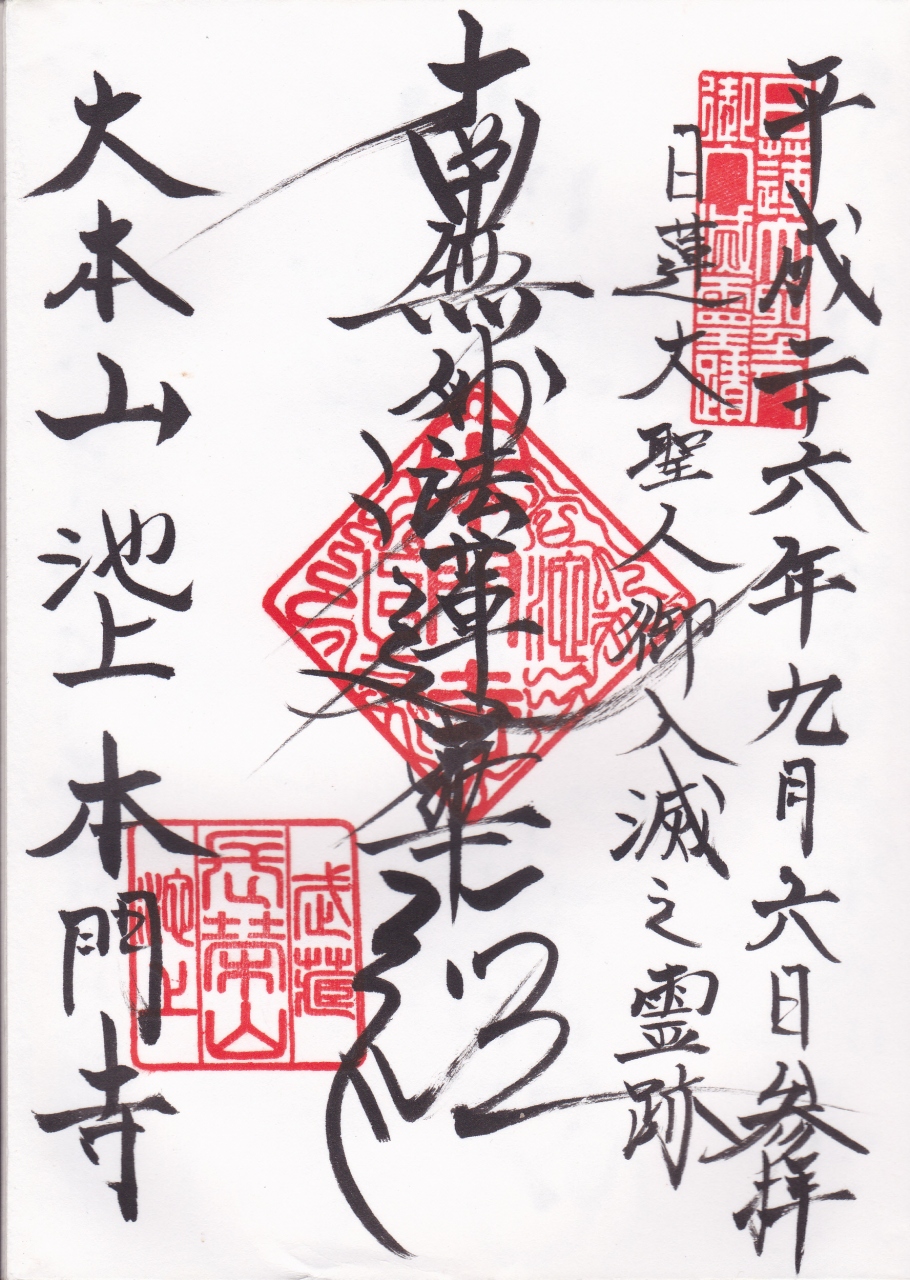 平成二十六年九月六日参拝
日蓮大聖人御入滅之霊跡
南無妙法蓮華経
大本山 池上 本門寺
日蓮大聖人
御入滅霊蹟
武蔵
長榮山
池上